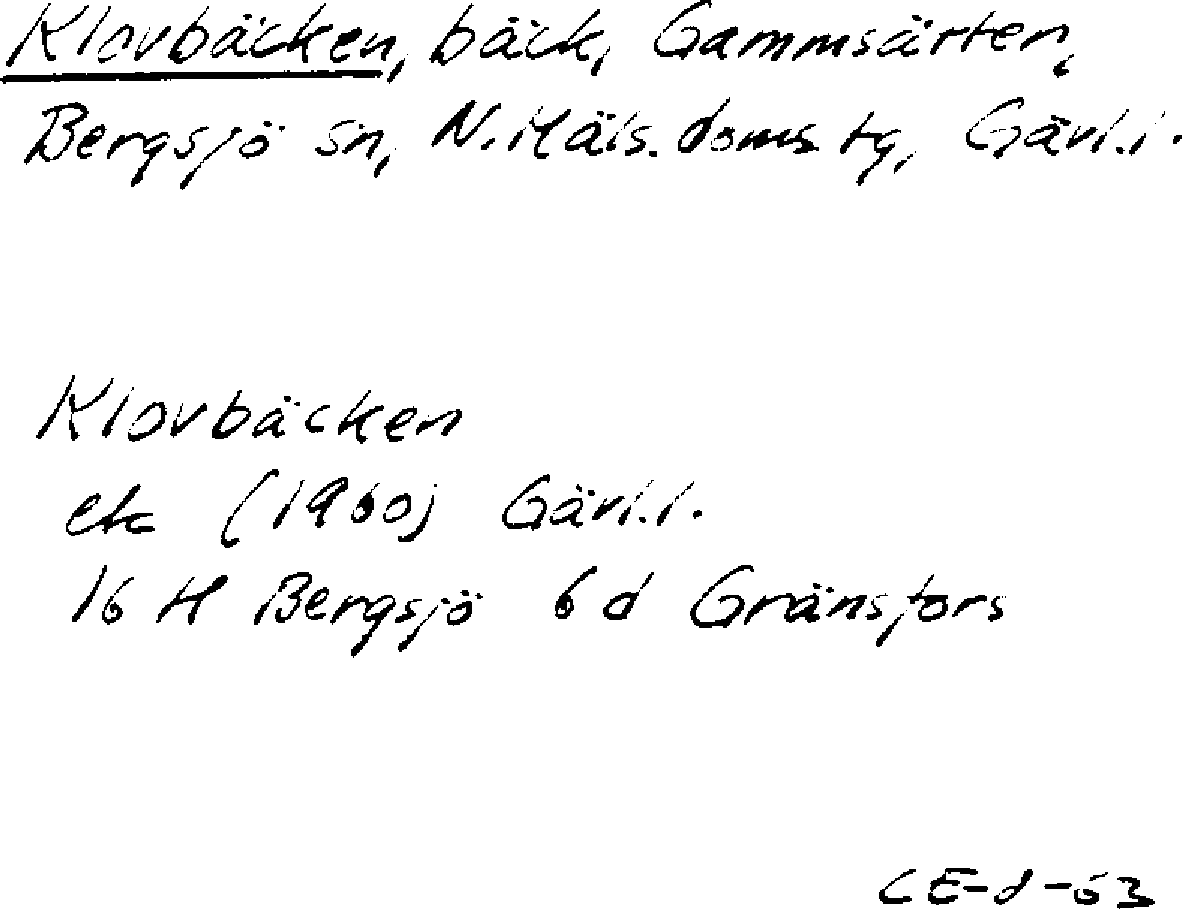 Klovbäcken, bäck, Gammsärten,
Bergsjö sn, N. Häls. doms. tg, Gävl. l.
Klovbäcken
ek (1960) Gävl. l.
16 H Bergsjö 6 d Gränsfors
CE-d-53